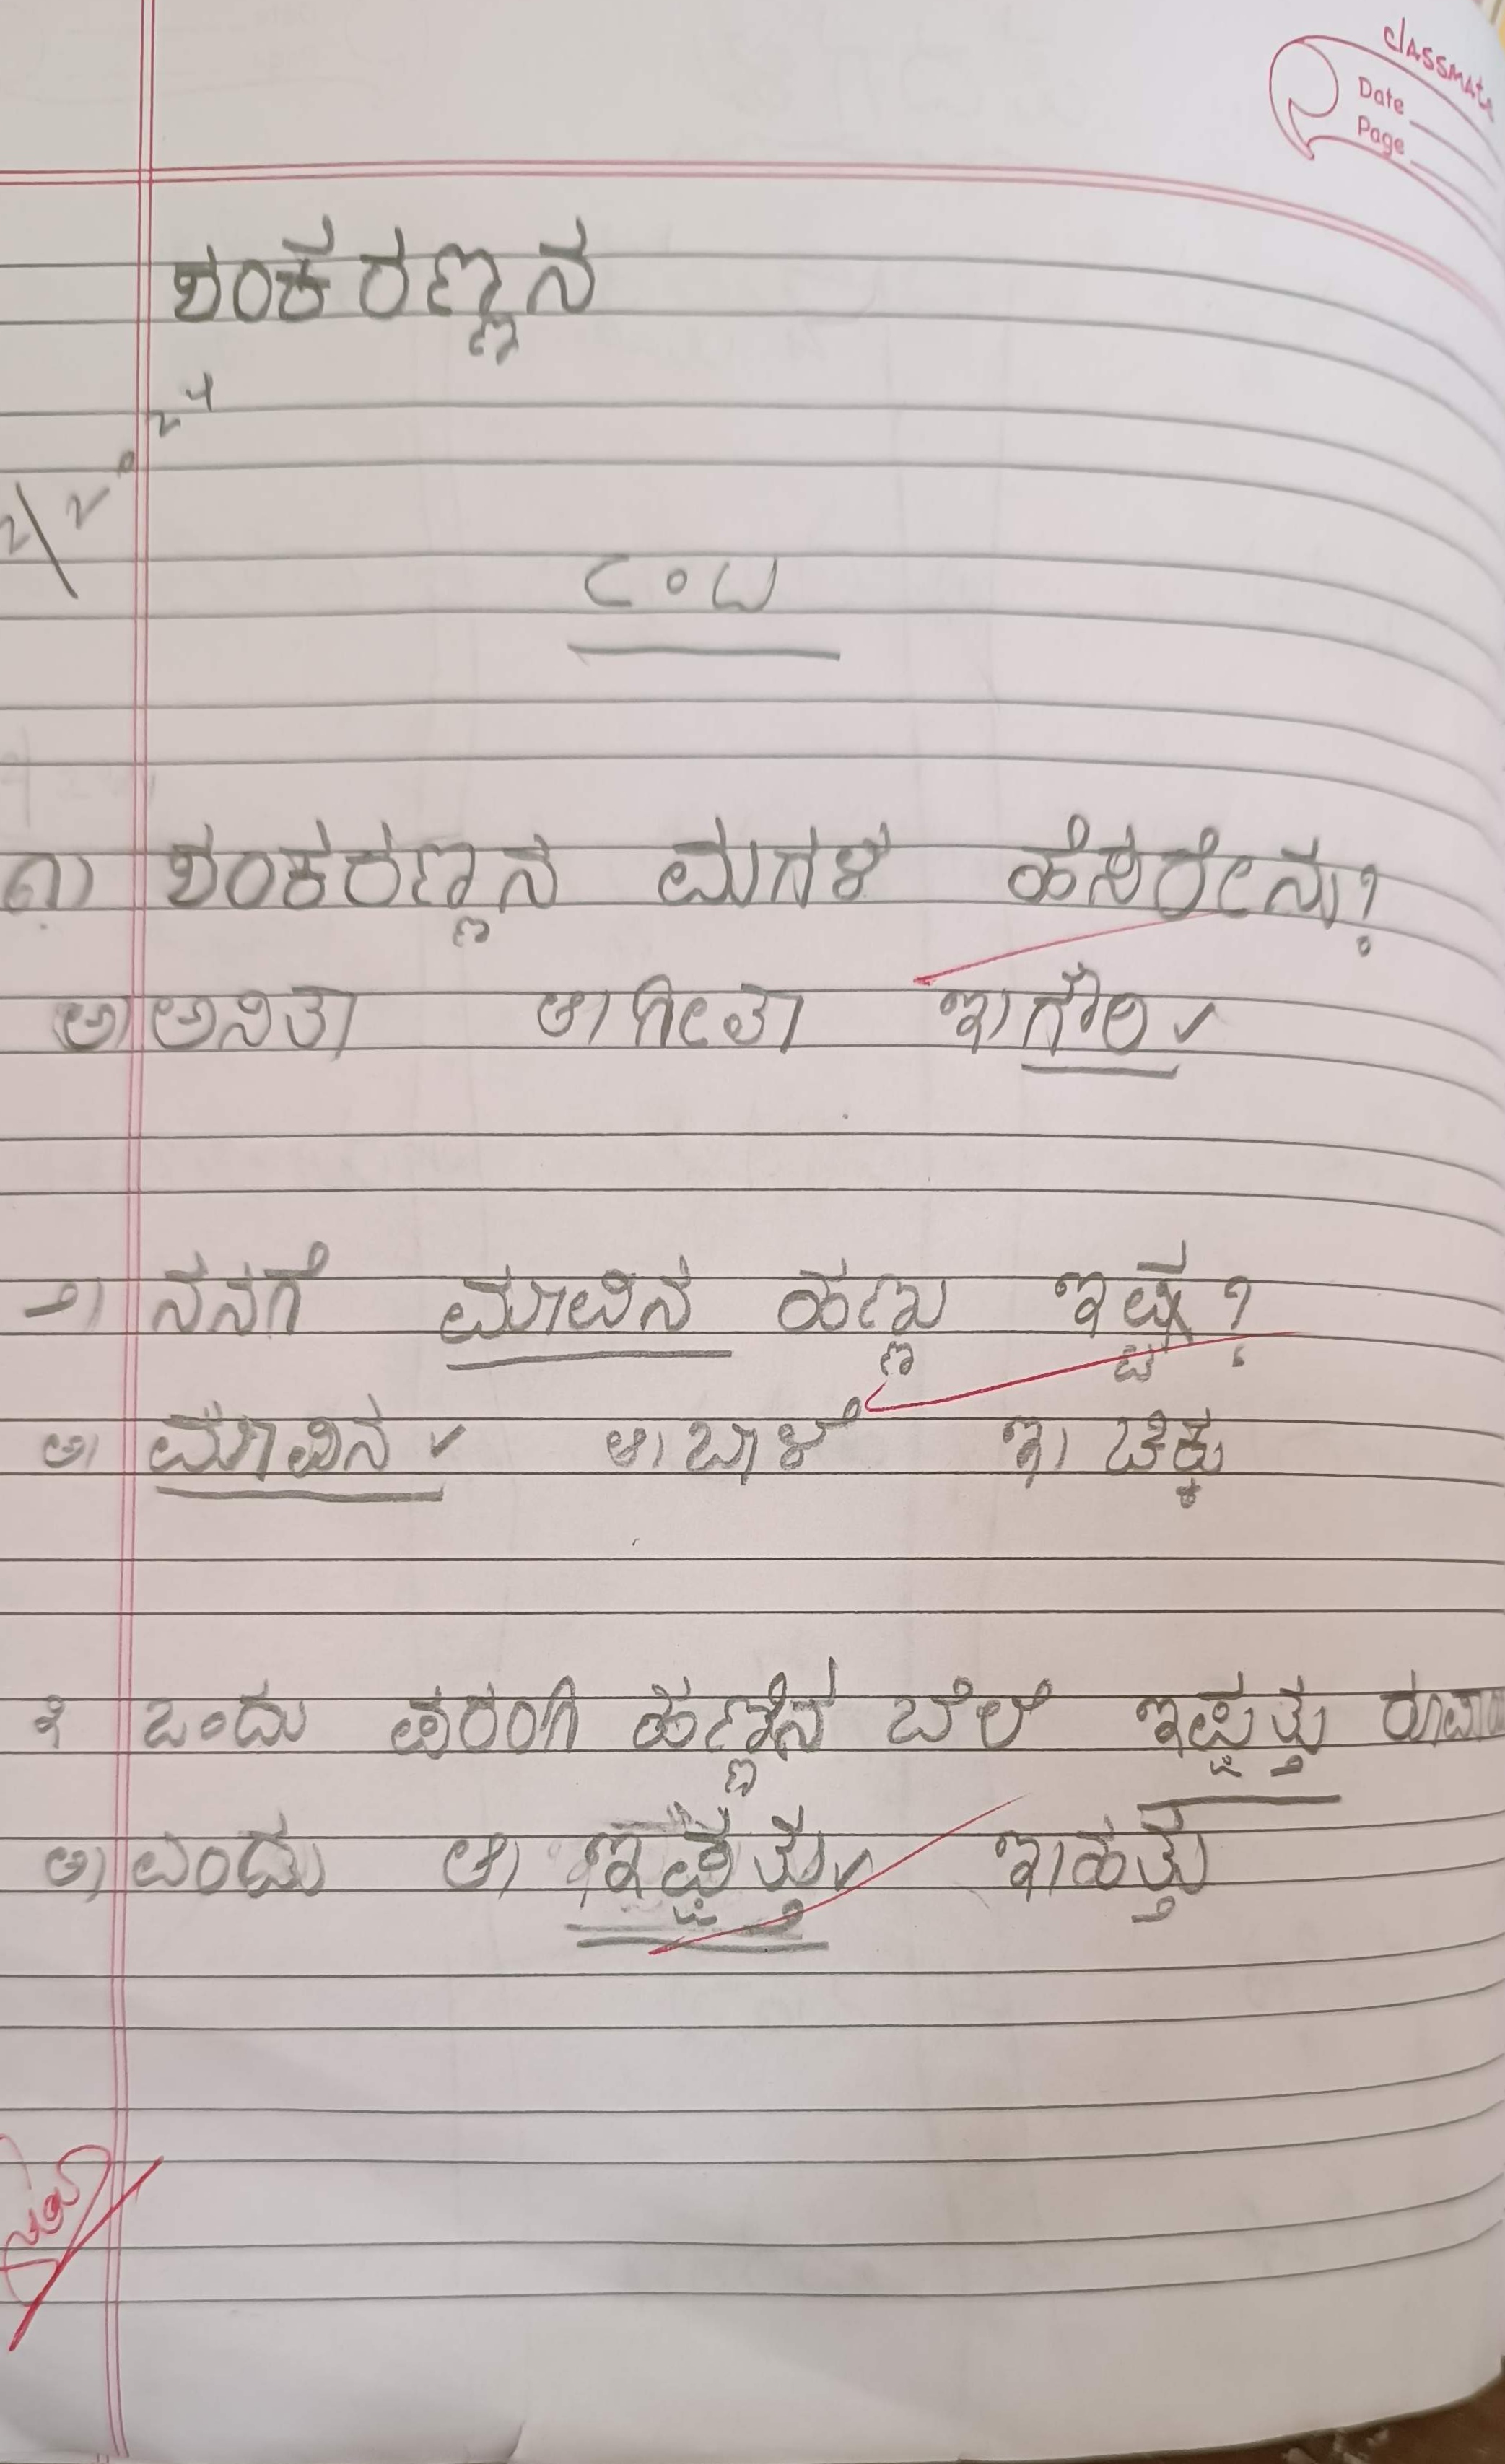 classmate
Date
Page
ಶಂಕರಣ್ಣನ
೧) ಶಂಕರಣ್ಣನ ಮಗಳ ಹೆಸರೇನು?
ಅ) ಅನಿತಾ ಆ) ಗೀತಾ ಇ) ಗೌರಿ ✓
೨) ನನಗೆ ಮಾವಿನ ಹಣ್ಣು ಇಷ್ಟ?
ಅ) ಮಾವಿನ ✓ ಆ) ಬಾಳೆ ಇ) ಚಿಕ್ಕು
೩ ಒಂದು ಪರಂಗಿ ಹಣ್ಣಿನ ಬೆಲೆ ಇಪ್ಪತ್ತು
ಅ) ಎಂದು ಆ) ಇಪ್ಪತ್ತು ✓ ಇ) ಹತ್ತು